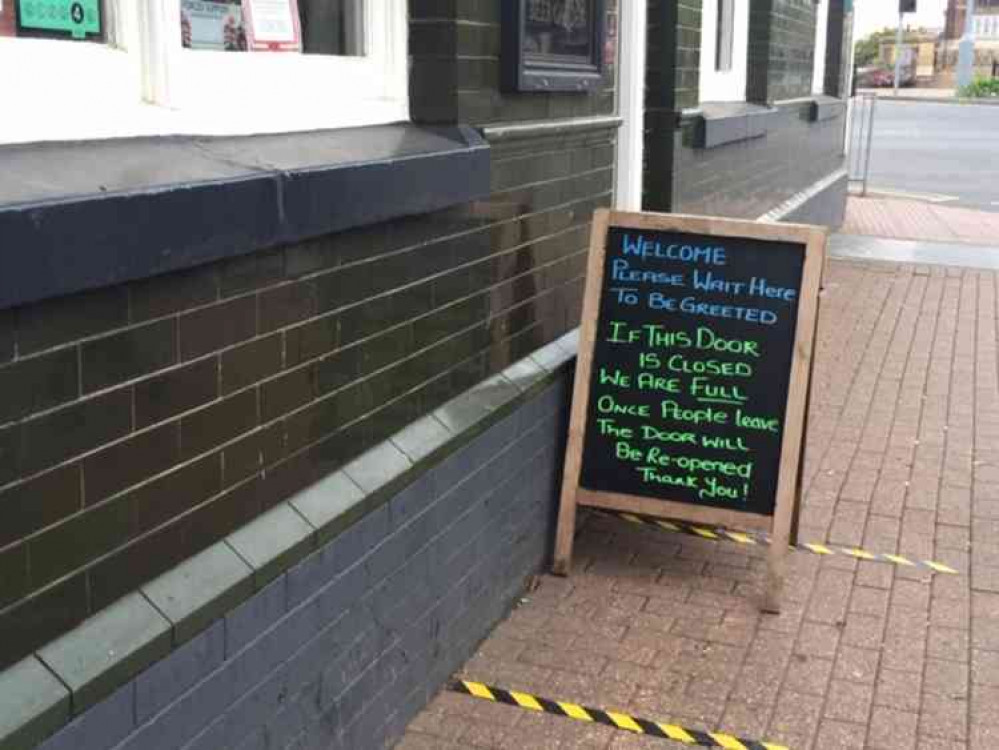 WELCOME
PLEASE WAIT Here
To BE GREETED
IF THIS DOOR
IS CLOSED
WE ARE FULL
ONCE PEOPLE leave
THE DOOR WILL
BE Re-opened
THANK You!
BEER GARDEN
4